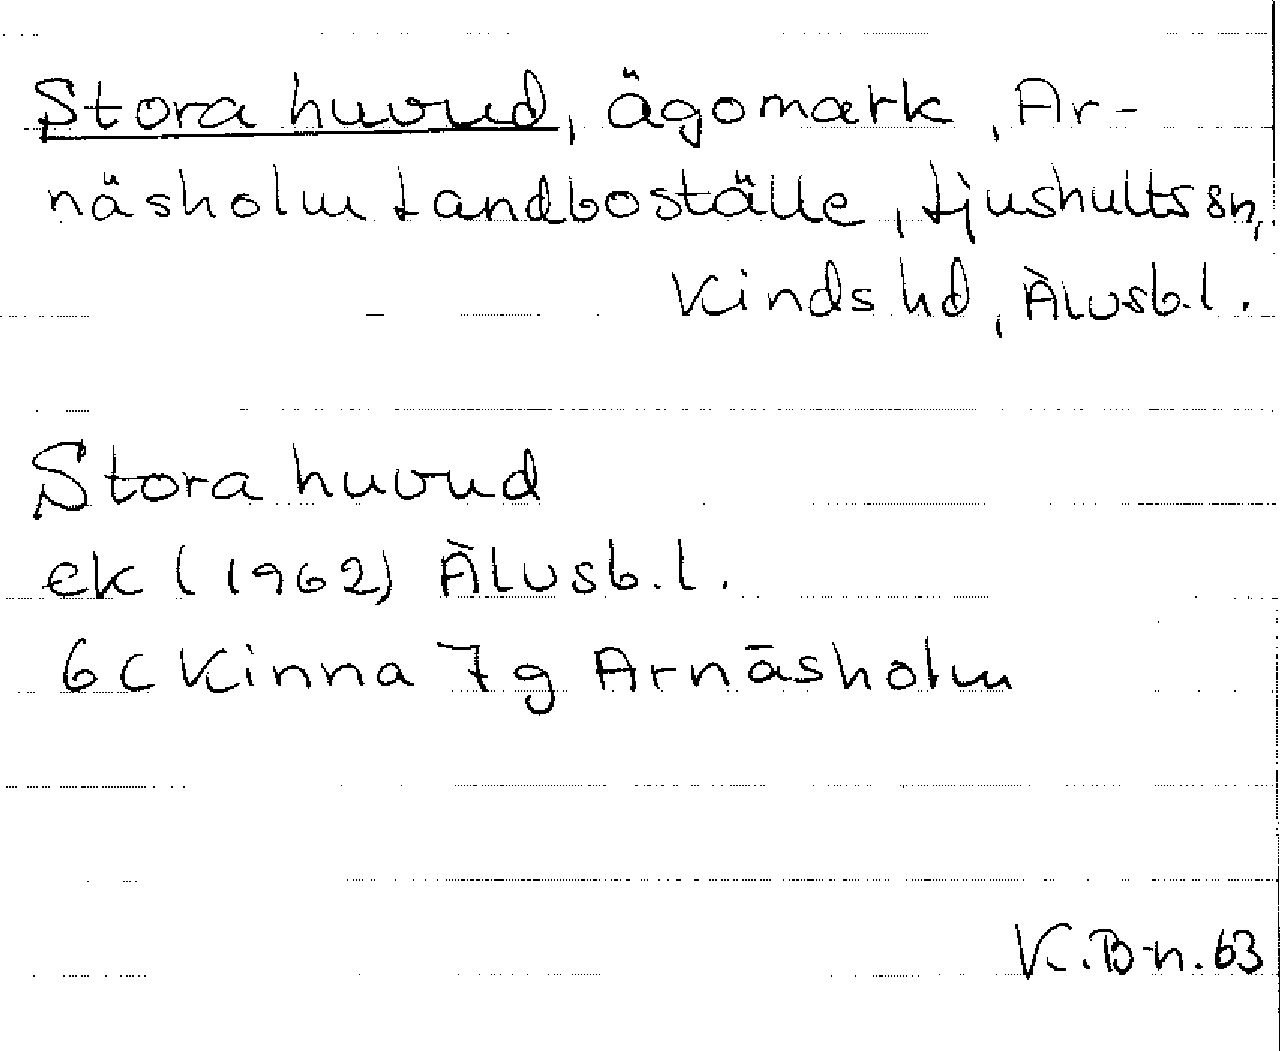 Stora huvud, ägomark, Ar-
näsholm Landboställe, Ljushults sn,
Kinds hd, Älvsb.l.
Stora huvud
ek (1962) Älvsb.l.
6C Kinna 7g Arnäsholm
K.B-n.63